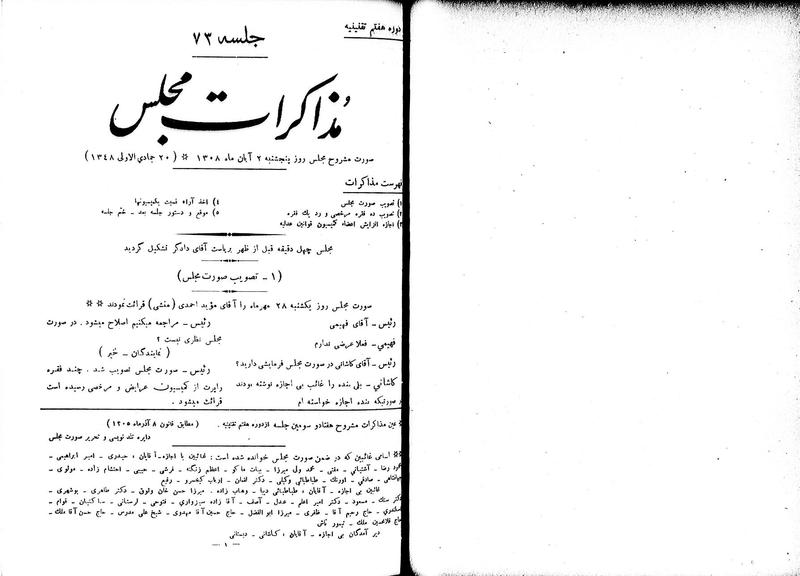 دوره هفتم تقنینیه
جلسه ۷۳
مذاکرات مجلس
صورت مشروح مجلس روز پنجشنبه ۲ آبان ماه ۱۳۰۸ ※ (۲۰ جمادی الاولی ۱۳۴۸)
فهرست مذاکرات
۱) تصویب صورت مجلس
۲) تصویب ده فقره مرخصی و رد یك فقره
۳) اجازه افزایش اعضاء کمیسیون قوانین عدلیه
۴) اخذ آراء نسبت بکمیسیونها
۵) موقع و دستور جلسه بعد ـ ختم جلسه
مجلس چهل دقیقه قبل از ظهر بریاست آقای دادگر تشکیل گردید
(۱ ـ تصویب صورت مجلس)
صورت مجلس روز یکشنبه ۲۸ مهرماه را آقای مؤید احمدی (منشی) قرائت نمودند ※※
رئیس ـ آقای فهیمی
فهیمی ـ فعلا عرضی ندارم
رئیس ـ آقای کاشانی در صورت مجلس فرمایشی دارید؟
کاشانی ـ بلی بنده را غائب بی اجازه نوشته بودند
در صورتیکه بنده اجازه خواسته ام
رئیس ـ مراجعه میکنیم اصلاح میشود . در صورت
مجلس نظری نیست ؟
(نمایندگان ـ خیر)
رئیس ـ صورت مجلس تصویب شد . چند فقره
راپرت از کمیسیون عرایض و مرخصی رسیده است
قرائت میشود .
※ عین مذاکرات مشروح هفتادو سومین جلسه ازدوره هفتم تقنینیه . (مطابق قانون ۸ آذرماه ۱۳۰۵)
دایره تند نویسی و تحریر صورت مجلس
※※ اسامی غائبین که در ضمن صورت مجلس خوانده شده است : غائبین با اجازه ـ آقایان ، حیدری ـ امیر ابراهیمی ـ
محمود رضا ـ آشتیانی ـ مفتی ـ محمد ولی میرزا ـ بیات ماکو ـ اعظم زنگنه ـ فرشی ـ حبیبی ـ احتشام زاده ـ مولوی ـ
ـ صادقی ـ اورنگ ـ طباطبائی وکیلی ـ دکتر لقمان ـ ارباب کیخسرو ـ رفیع
غائبین بی اجازه ـ آقایان ، طباطبائی دیبا ـ وهاب زاده ـ میرزا حسن خان وثوق ـ دکتر طاهری ـ بوشهری ـ
دکتر سنك ـ مسعود ـ دکتر امیر اعلم ـ عدل ـ آصف ـ آقا زاده سبزواری ـ فتوحی ـ لرستانی ـ ساکنیان ـ قوام ـ
اسکندری ـ حاج رحیم آقا ـ ظفری ـ میرزا ابوالفضل ـ حاج حسین آقا مهدوی ـ شیخ علی مدرس ـ حاج حسن آقا ملك ـ
حاج غلامحسین ملك ـ تیمور تاش
دیر آمدگان بی اجازه ـ آقایان ، کاشانی ـ دبستانی
ـ ۱ ـ